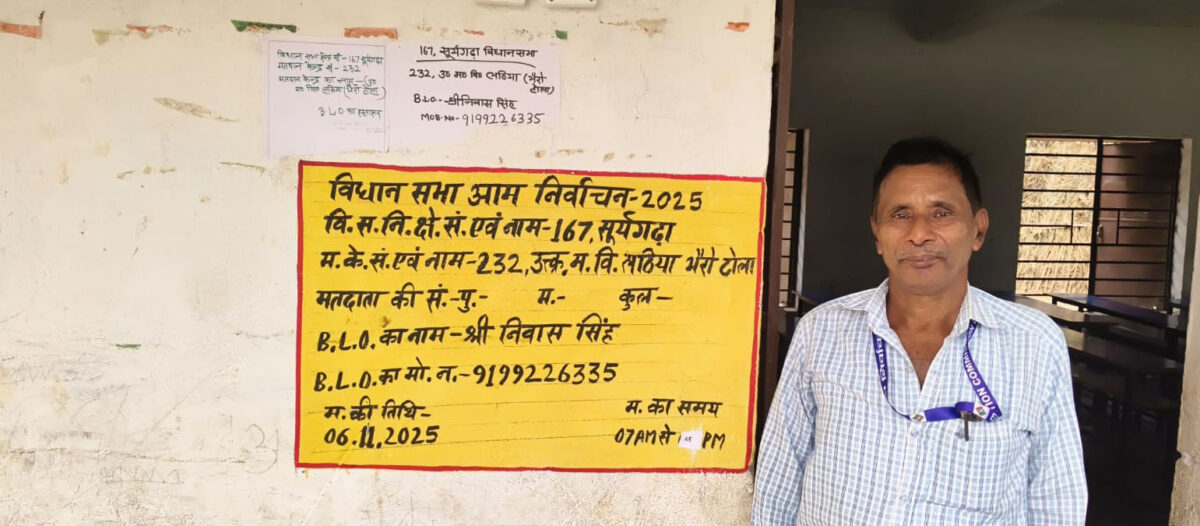 विधान सभा क्षेत्र सं - 167 सूर्यगढ़ा
मतदान केन्द्र सं - 232
मतदान केन्द्र का नाम - (उ०
म० वि० लठिया (भैरो टोला)
B L O का हस्ताक्षर
167, सूर्यगढ़ा विधानसभा
232, उ० म० वि० लठिया (भैरो
टोला)
B.L.O.- श्रीनिवास सिंह
MOB.NO- 9199226335
विधान सभा आम निर्वाचन-2025
वि.स.नि.क्षे.सं.एवं नाम-167, सूर्यगढ़ा
म.के.सं.एवं नाम-232, उत्क्र.म.वि. लठिया भैरो टोला
मतदाता की सं.-पु.- म.- कुल-
B.L.O. का नाम-श्री निवास सिंह
B.L.O. का मो. न.-9199226335
म. की तिथि- म. का समय
06.11.2025 07AM से PM
TION COMM